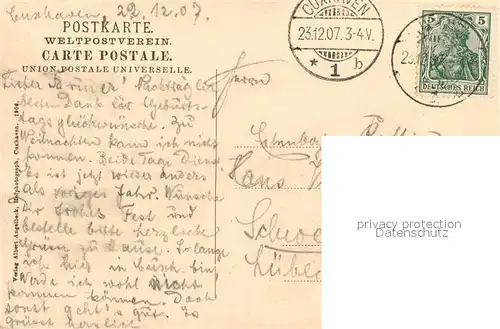 Cuxhaven, 22.12.07.
POSTKARTE.
WELTPOSTVEREIN.
CARTE POSTALE.
UNION POSTALE UNIVERSELLE.
CUXHAVEN
23.12.07. 3-4 V.
* 1 b
5 5
DEUTSCHES REICH
Herrn
Hans
Lübe
Nachträglich
besten Dank für Geburts-
tagsglückwünsche. Zu
Weihnachten kann ich nicht
kommen. Beide Tage Dienst
es ist jetzt wieder anders
als voriges Jahr. Wünsche
Dir frohes Fest und
bestelle bitte herzliche
Grüsse zu Hause. Solange
ich hier in bin,
werde ich wohl nicht
kommen können. Doch
sonst geht's gut. Es
grüsst herzlich
Verlag Albert Hofphotograph, Cuxhaven. 1904
privacy protection
Datenschutz